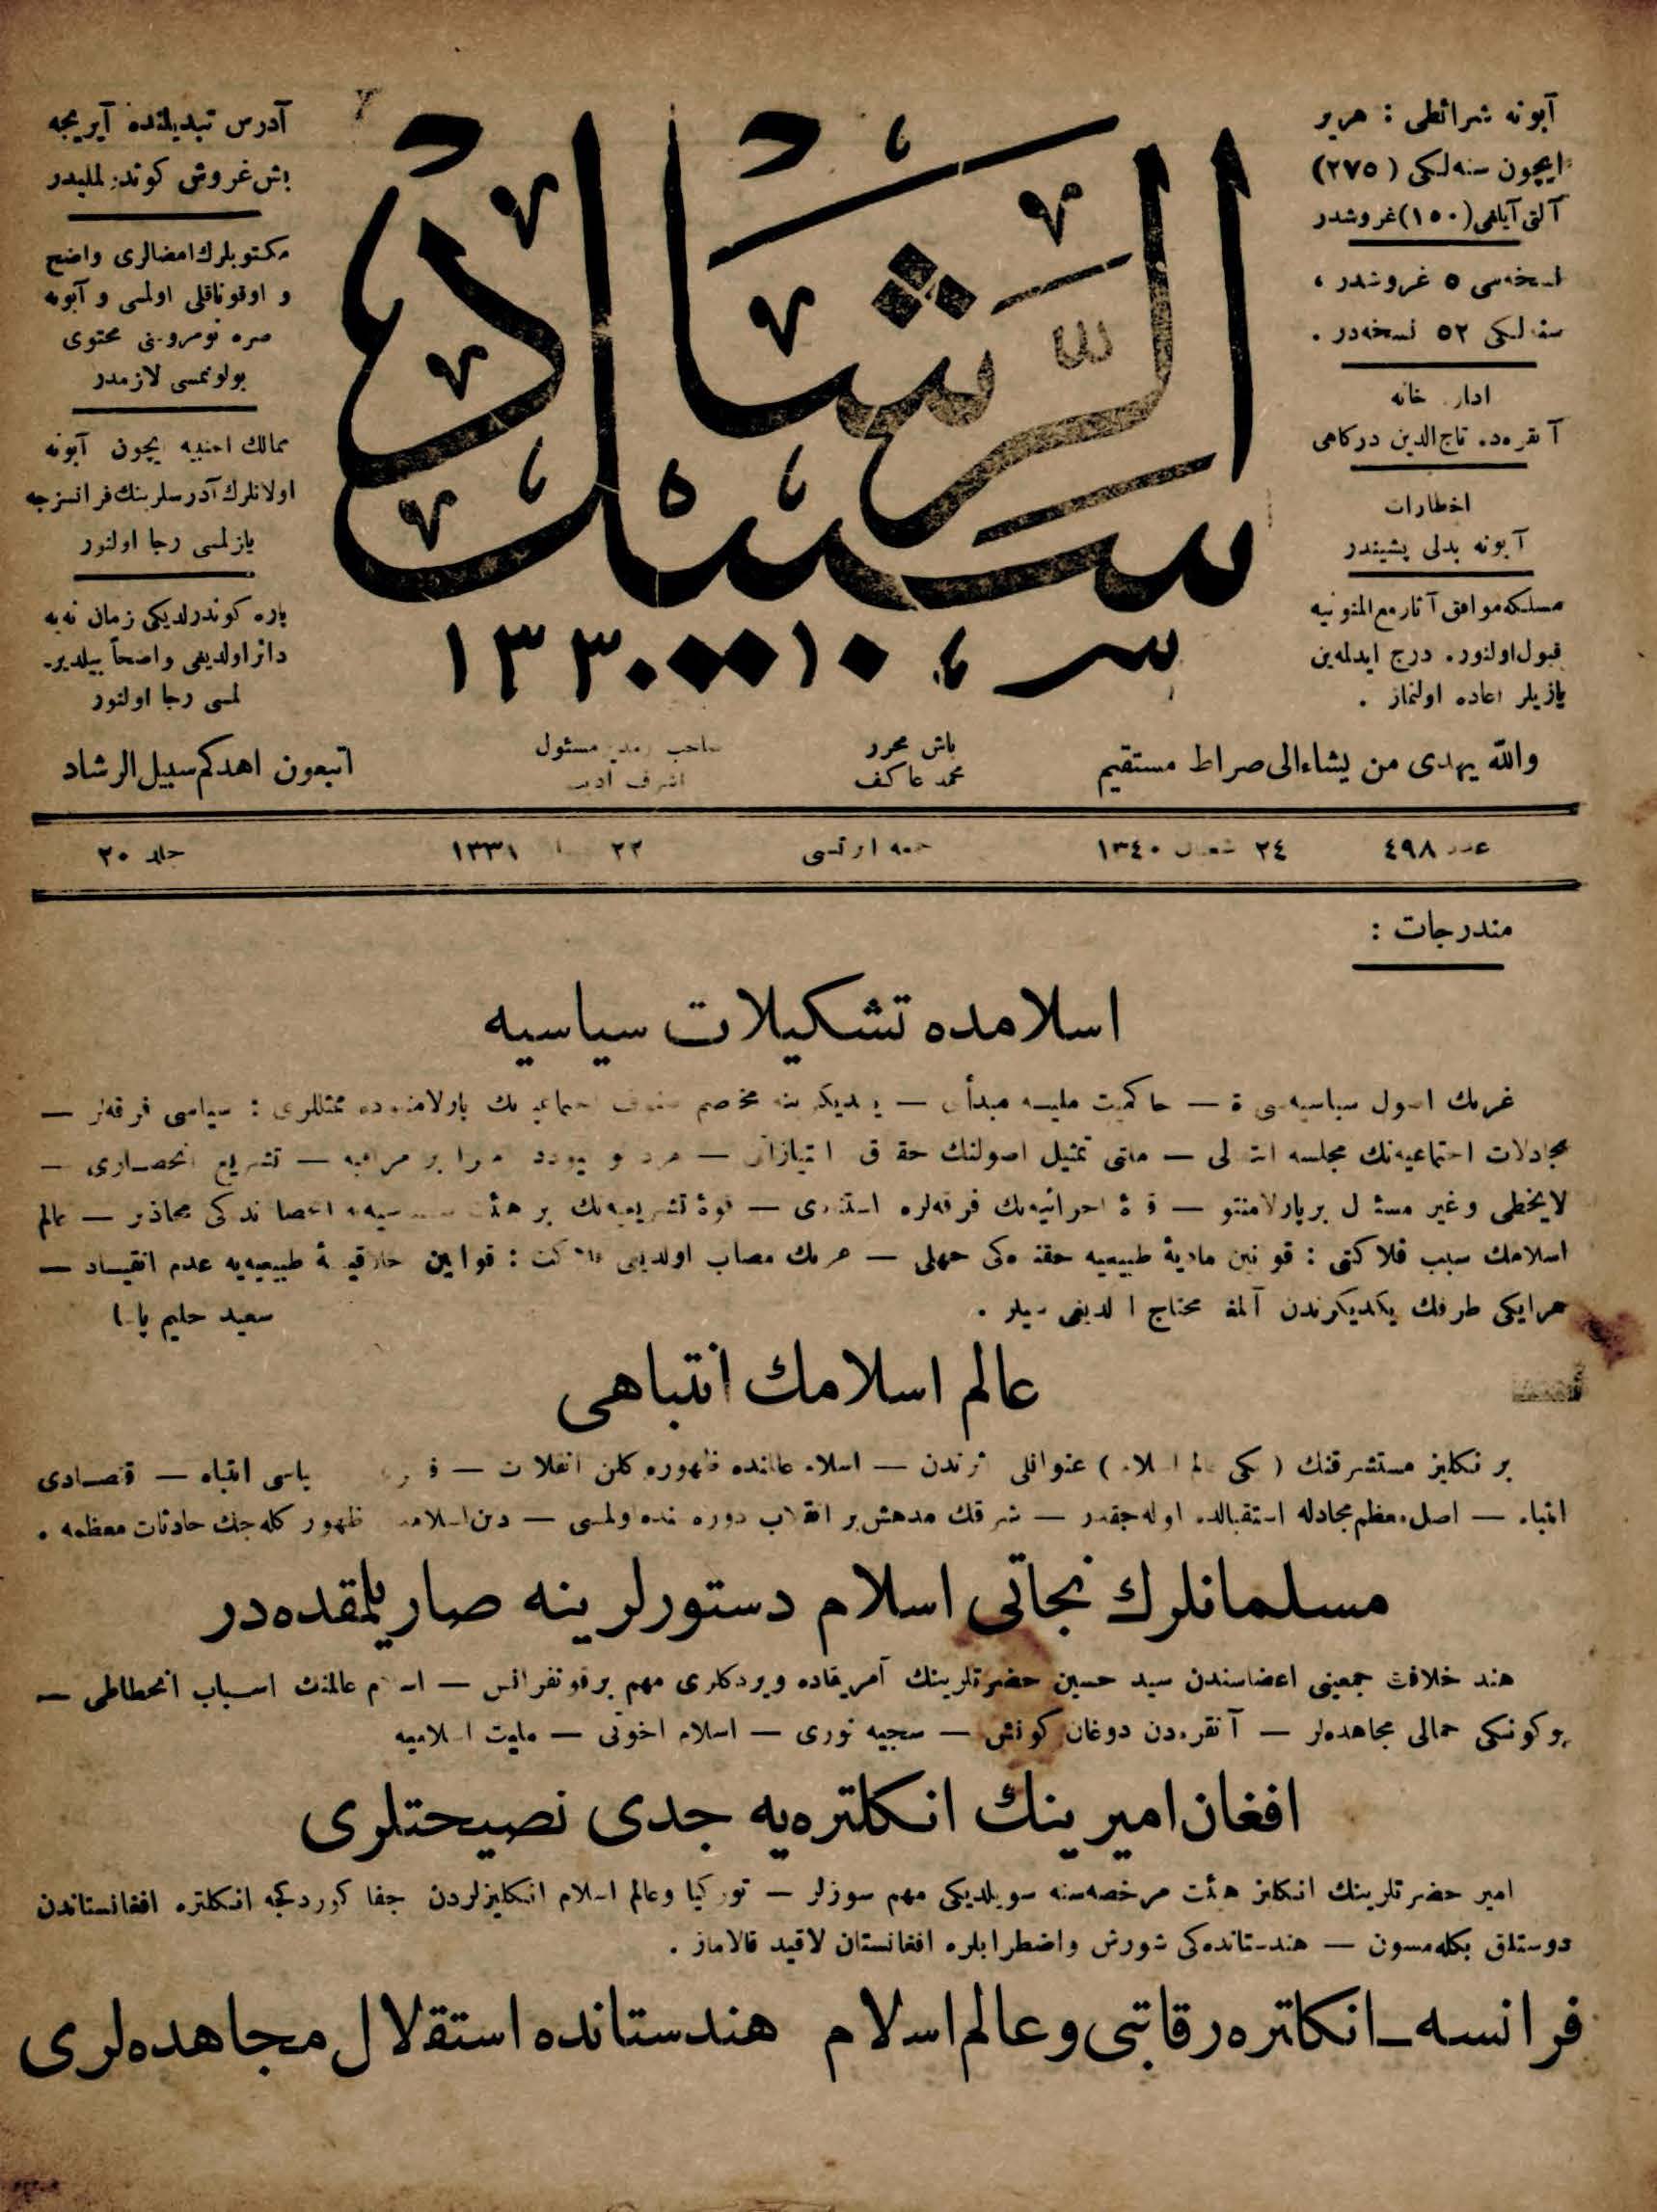 آبونه شرائطی : هر یر
ایچون سنه‌لكی (٢٧٥)
آلتی آیلغی (١٥٠) غروشدر
نسخه‌سی ٥ غروشدر ،
سنه‌لكی ٥٢ نسخه‌در .
اداره خانه
آنقره‌ده تاج الدین دركاهی
اخطارات
آبونه بدلی پشیندر
مسلكه موافق آثار مع الممنونیه
قبول اولنور. درج ایدلمه‌ین
یازیلر اعاده اولنماز .
سبيل الرشاد
١٣٣٠
آدرس تبدیلنده آیریجه
بش غروش كوندرلملیدر
مكتوبلرك امضالری واضح
و اوقوناقلی اولمسی و آبونه
صره نومروسنی محتوی
بولونمسی لازمدر
ممالك اجنبیه ایچون آبونه
اولانلرك آدرسلرینك فرانسزجه
یازلمسی رجا اولنور
پاره كوندرلدیكی زمان نه‌یه
دائر اولدیغی واضحاً بیلدیر-
لمسی رجا اولنور
والله يهدى من يشاء الى صراط مستقيم
باش محرر
محمد عاكف
صاحب ومدیر مسئول
اشرف ادیب
اتبعون اهدكم سبيل الرشاد
عدد ٤٩٨
٢٤ شعبان ١٣٤٠
جمعه ارتسی
٢٢ ١٣٣١
جلد ٢٠
مندرجات :
اسلامده تشكیلات سیاسیه
غربك اصول سیاسیه‌سی — حاكمیت ملیه مبدأی — یكدیكرینه مخصم صنوف اجتماعیه‌نك پارلامنتوده ممثللری : سیاسی فرقه‌لر —
مجادلات اجتماعیه‌نك مجلسه انتقالی — ملتی تمثیل اصولنك حقوق امتیازاتی — — تشریع انحصاری —
لایخطی وغیر مسئول بر پارلامنتو — قوۀ اجرائیه‌نك فرقه‌لره استنادی — قوۀ تشریعیه‌نك بر هیئت محاذیر — عالم
اسلامك سبب فلاكتی : قوانین مادیۀ طبیعیه حقنده‌كی جهلی — غربك مصاب اولدیغی فلاكت : قوانین اخلاقیۀ طبیعیه‌یه عدم انقیاد —
هر ایكی طرفك یكدیكرندن آلمغه محتاج اولدیغی شیلر .
سعید حلیم پاشا
عالم اسلامك انتباهی
بر انكلیز مستشرقنك ( یكی عالم اسلام ) عنوانلی اثرندن — اسلام عالمنده ظهوره كلن انقلابات — سیاسی انتباه — اقتصادی
انتباه — اصل معظم مجادله استقبالده اوله‌جقدر — شرقك مدهش بر انقلاب دوره‌سنده اولمسی — دین اسلامده ظهوره كله‌جك حادثات معظمه .
مسلمانلرك نجاتی اسلام دستورلرینه صاریلمقده‌در
هند خلافت جمعیتی اعضاسندن سید حسین حضرتلرینك آمریقاده ویردكلری مهم بر قونفرانس — اسلام عالمنك اسباب انحطاطی —
بوكونكی حمالی مجاهده‌لر — آنقره‌دن دوغان كونش — سجیه نوری — اسلام اخوتی — ملیت اسلامیه
افغان امیرینك انكلتره‌یه جدی نصیحتلری
امیر حضرتلرینك انكلیز هیئت مرخصه‌سنه سویلدیكی مهم سوزلر — توركیا وعالم اسلام انكلیزلردن جفا كوردكجه انكلتره افغانستاندن
دوستلق بكله‌مسون — هندستانده‌كی شورش واضطرابلره افغانستان لاقید قالاماز .
فرانسه ـ انكلتره رقابتی و عالم اسلام هندستانده استقلال مجاهده‌لری